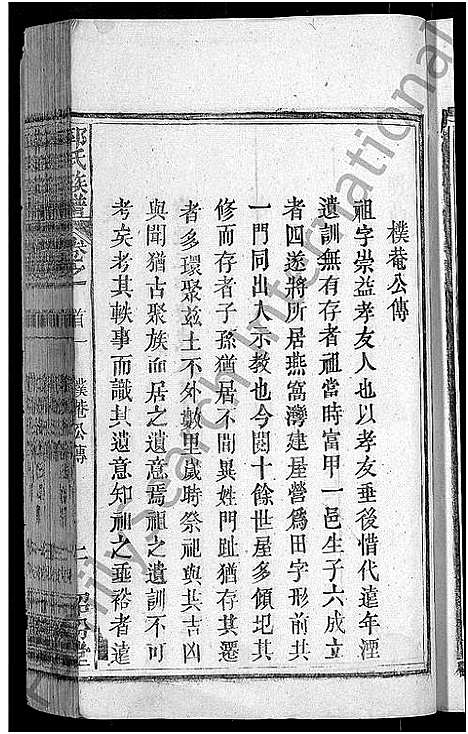 樸菴公傳
祖字崇益孝友人也以孝友垂後惜代遠年湮
遺訓無有存者祖當時富甲一邑生子六成立
者四遂將所居燕窩灣建屋營為田字形前共
一門同出入示教也今閱十餘世屋多傾圯其
修而存者子孫猶居不間異姓門趾猶存其遷
者多環聚茲土不外數里歲時祭祀與其吉凶
與聞猶古聚族而居之遺意焉祖之遺訓不可
考矣考其軼事而識其遺意知祖之垂裕者遠
氏族譜
卷之一
首
樸菴公傳
二
堂
Family Search International